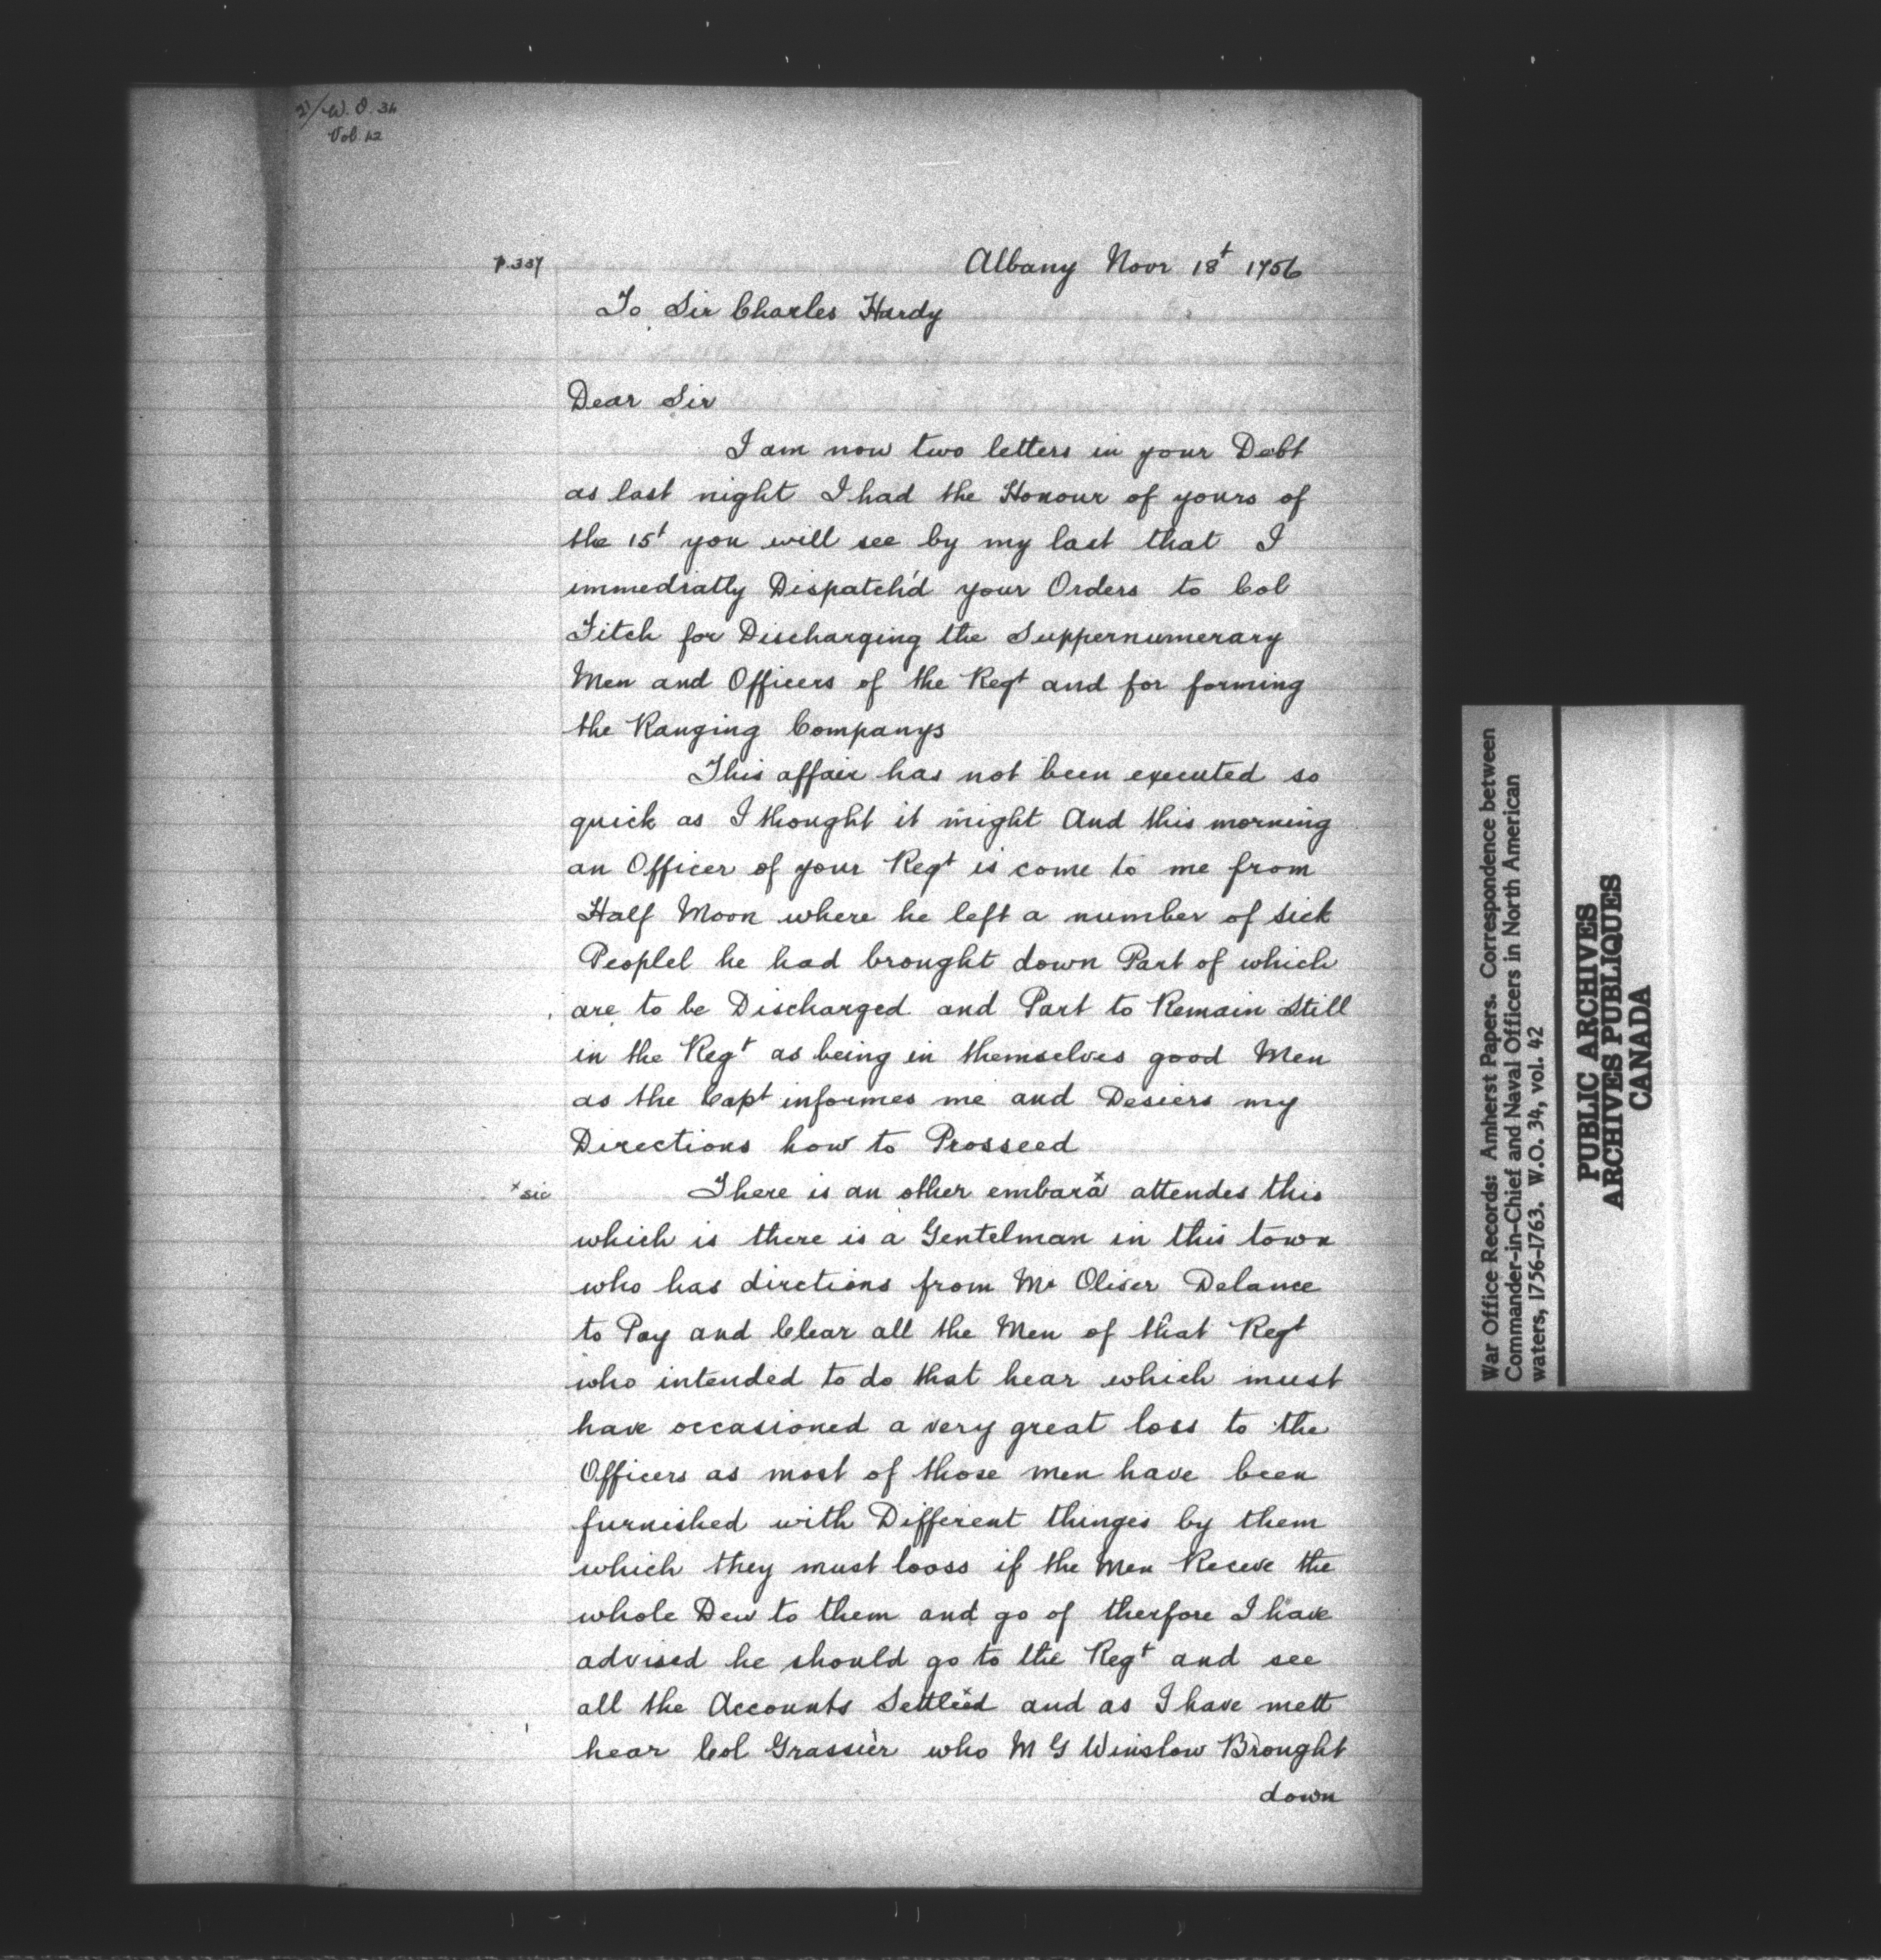 2/W.O. 34
Vol. 42
p. 337
Albany Novr 18t 1756
To Sir Charles Hardy
Dear Sir
I am now two letters in your Debt
as last night I had the Honour of yours of
the 15t you will see by my last that I
immediatly Dispatch'd your Orders to Col
Fitch for Discharging the Suppernumerary
Men and Officers of the Regt and for forming
the Ranging Companys
This affair has not been executed so
quick as I thought it might And this morning
an Officer of your Regt is come to me from
Half Moon where he left a number of sick
Peoplel he had brought down Part of which
are to be Discharged and Part to Remain Still
in the Regt as being in themselves good Men
as the Capt informes me and Desiers my
Directions how to Prosseed
x sic
There is an other embara x attendes this
which is there is a Gentelman in this town
who has dirctions from Mr Oliver Delance
to Pay and Clear all the Men of that Regt
who intended to do that hear which must
have occasioned a very great loss to the
Officers as most of those men have been
furnished with Different thinges by them
which they must looss if the Men Receve the
whole Dew to them and go of therfore I have
advised he should go to the Regt and see
all the Accounts Settleed and as I have mett
hear Col Grassier who M G Winslow Brought
down
War Office Records: Amherst Papers. Correspondence between
Commander-in-Chief and Naval Officers in North American
waters, 1756-1763. W.O. 34, vol. 42
PUBLIC ARCHIVES
ARCHIVES PUBLIQUES
CANADA